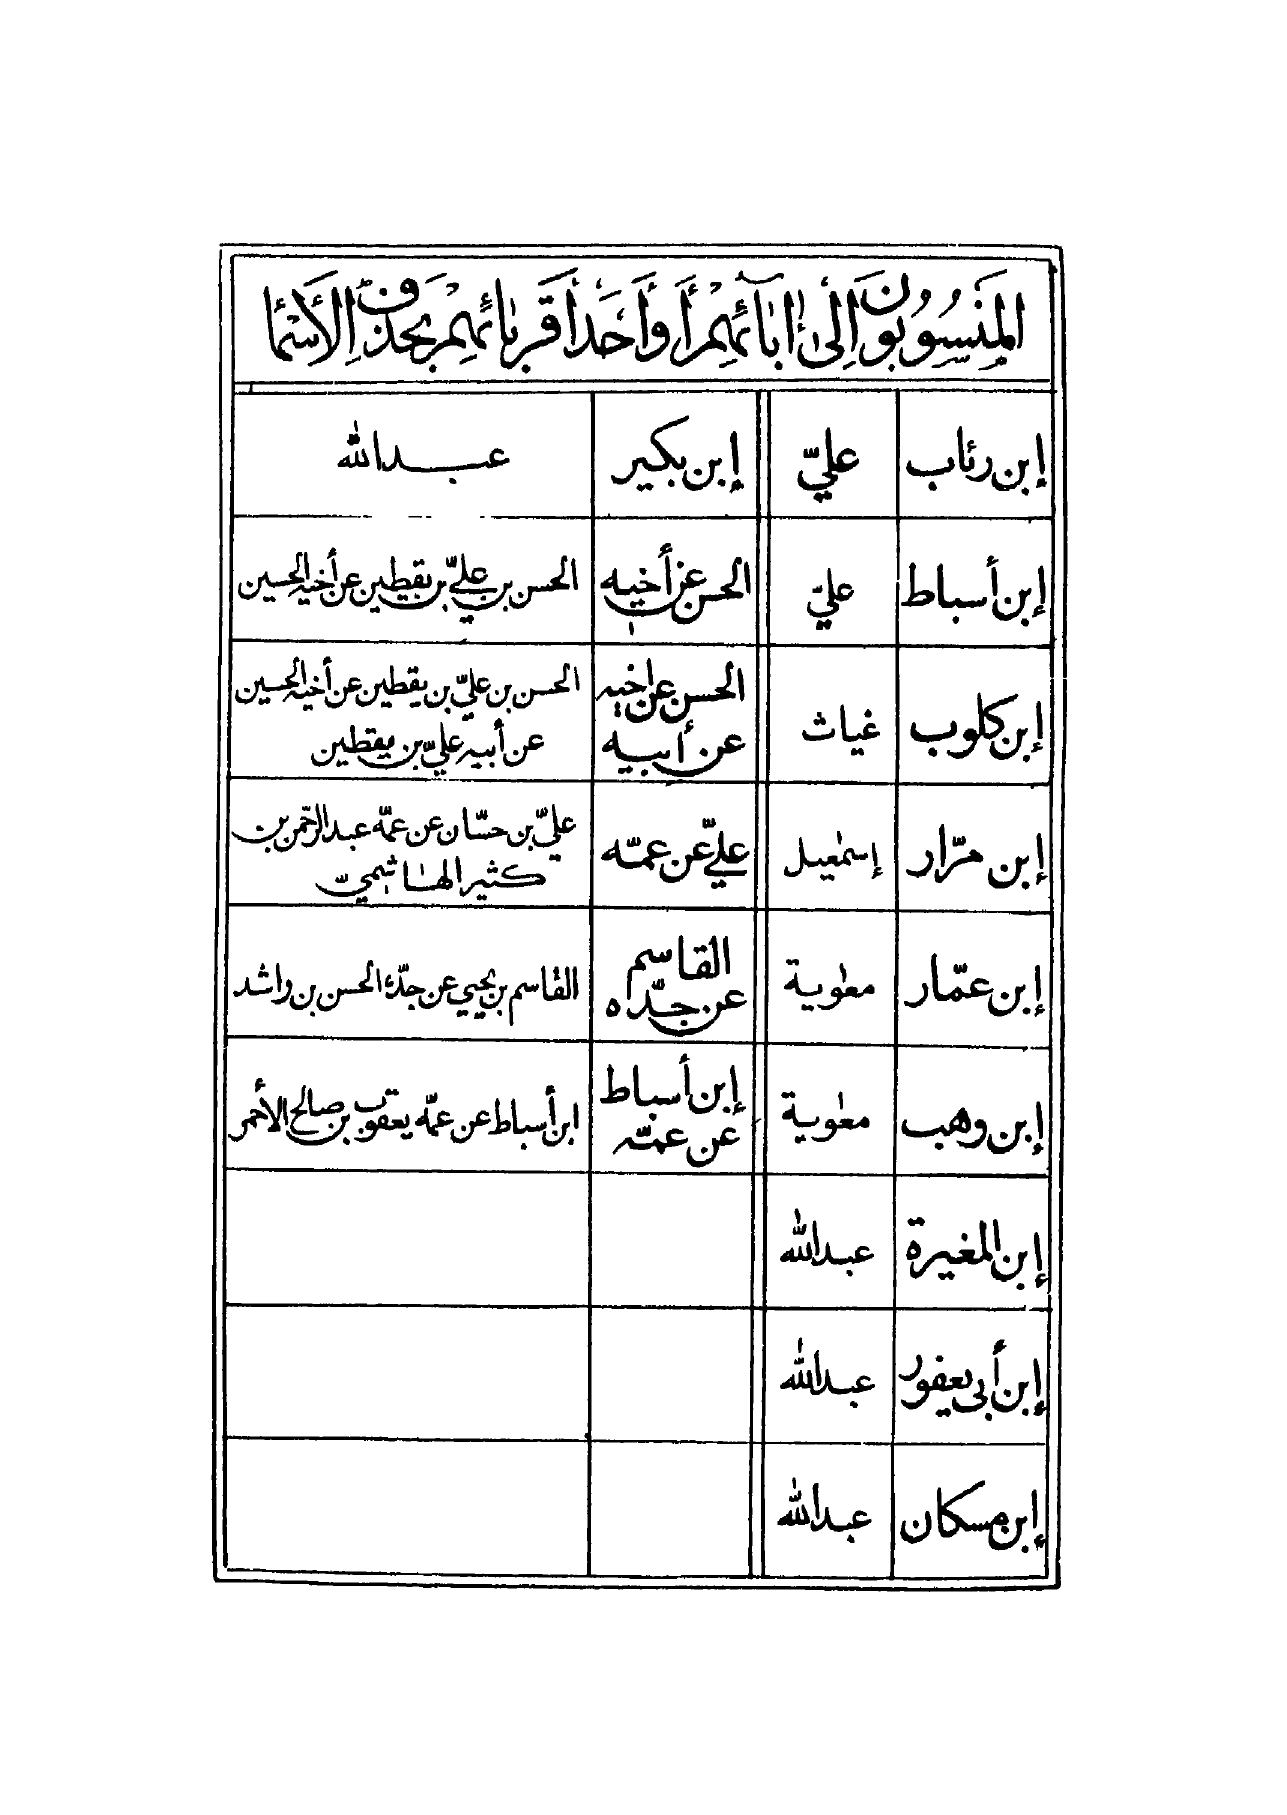 المنسوبون إلى آبائهم أو أحد أقربائهم بحذف الأسماء
إبن رئاب عليّ إبن بكير عبدالله
إبن أسباط عليّ الحسن عن أخيه الحسن بن عليّ بن يقطين عن أخيه الحسين
إبن كلوب غياث الحسن عن أخيه الحسن بن عليّ بن يقطين عن أخيه الحسين
عن أبيه عن أبيه عليّ بن يقطين
إبن مرّار إسمٰعيل عليّ عن عمّه عليّ بن حسّان عن عمّه عبد الرحمن بن
كثير الهاشميّ
إبن عمّار معٰوية القاسم
عن جدّه القاسم بن يحيى عن جدّه الحسن بن راشد
إبن وهب معٰوية إبن أسباط
عن عمّه ابن أسباط عن عمّه يعقوب بن صالح الأحمر
إبن المغيرة عبدالله
إبن أبي يعفور عبدالله
إبن مسكان عبدالله